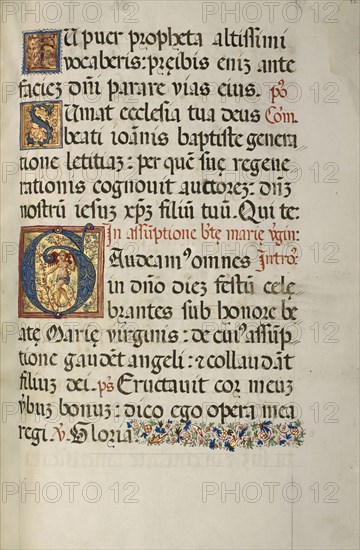 Tu puer propheta altissimi
vocaberis: preibis eniȝ ante
facieȝ dñi parare vias eius. pꝰ
Sumat ecclesia tua deus Com̃
beati ioãnis baptiste genera
tione letitiaȝ: per quẽ suę regene
rationis cognovit auctoreȝ: dñȝ
nostrũ iesuȝ xp̃ȝ filiũ tuũ. Qui te:
In assũptione bt̃e marie ṽgin:
Gaudeamꝰ omnes Introꝰ.
in dño dieȝ festũ cele
brantes sub honore be
atę Marię virginis: de cuiꝰ assũp
tione gaudẽt angeli: ⁊ collaudãt
filiuȝ dei. pꝰ Eructavit cor meuȝ
ṽbuȝ bonuȝ: dico ego opera mea
regi. ℣ Gloria.
PHOTO12